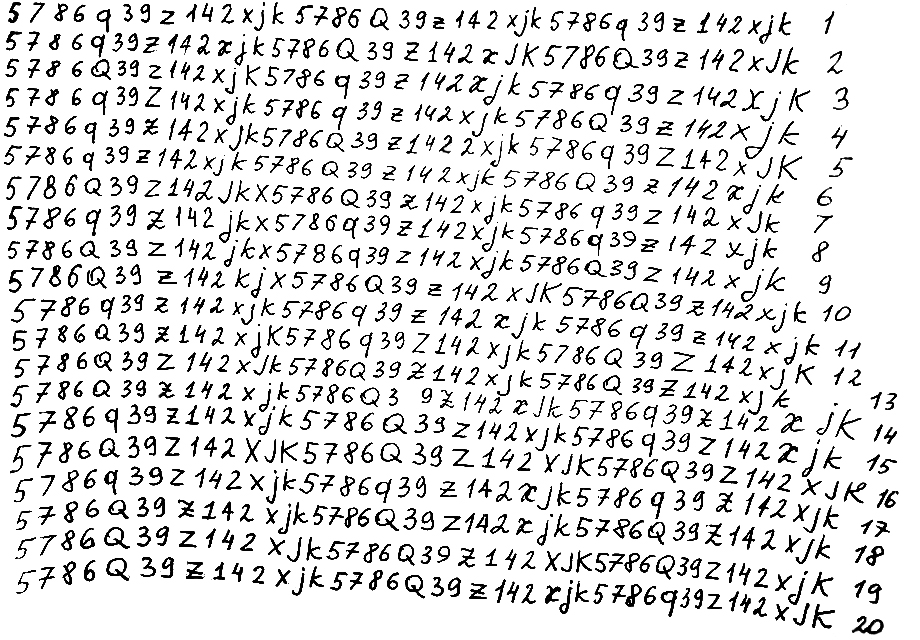 5786q39z142xjk5786Q39z142xjk5786q39z142xjk 1
5786q39z142xjk5786Q39z142xJK5786Q39z142xJk 2
5786Q39z142xjK5786q39z142xjk5786q39z142XjK 3
5786q39Z142xjk5786q39z142xjk5786Q39z142xjk 4
5786q39z142xJk5786Q39z1422xjk5786q39Z142xJK 5
5786q39z142xjk5786Q39z142xjk5786Q39z142xjk 6
5786Q39Z142JkX5786Q39z142xjk5786q39Z142xJk 7
5786q39z142jkx5786q39z142xjk5786q39z142xjk 8
5786Q39z142jkx5786q39z142xjk5786Q39z142xjk 9
5786Q39z142kjx5786Q39z142xJK5786Q39z142xjk 10
5786q39z142xjk5786q39z142xjk5786q39z142xjk 11
5786Q39z142xjK5786q39Z142xjk5786Q39Z142xjK 12
5786Q39z142xJk5786Q39z142xjk5786Q39z142xjk 13
5786Q39z142xjk5786Q3 9z142xJk5786q39z142xjK 14
5786q39z142xjk5786Q39z142xjk5786q39z142xjk 15
5786Q39Z142XJK5786Q39Z142XJK5786Q39Z142XJK 16
5786q39z142xjk5786q39z142xjk5786q39z142xjk 17
5786Q39z142xjk5786Q39Z142xjk5786Q39z142xJk 18
5786Q39z142xJk5786Q39z142XJK5786Q39z142xjK 19
5786Q39z142xjk5786Q39z142xjk5786q39Z142xJK 20